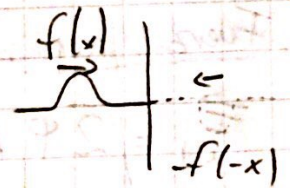 f(x)
-f(-x)